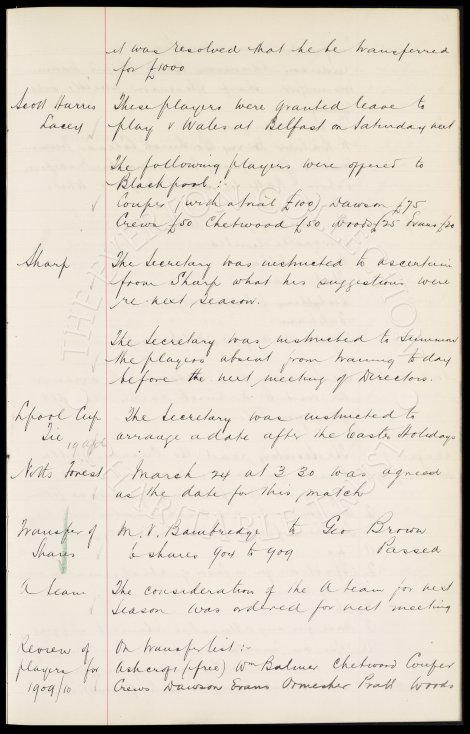 it was resolved that he be transferred
for £1000
Scott Harris These players were granted leave to
Lacey play v Wales at Belfast on Saturday next
The following players were offered to
Blackpool :-
Couper (with a trial £100) Dawson £75
Crews £50 Chetwood £50 Woods £25 Evans £20
Sharp The Secretary was instructed to ascertain
from Sharp what his suggestions were
re next season.
The Secretary was instructed to summon
the players absent from training to day
before the next meeting of Directors.
L'pool Cup The Secretary was instructed to
Tie 19 apl arrange a date after the Easter Holidays
Notts Forest March 24 at 3.30 was agreed
as the date for this match
Transfer of M. V. Bambredge to Geo Brown
Shares 6 shares 904 to 909 Passed
A team The consideration of the A team for next
season was ordered for next meeting
Review of On transfer list :-
players for Ashcroft (free) Wm Balmer Chetwood Couper
1909/10 Crews Dawson Evans Ormesher Pratt Woods